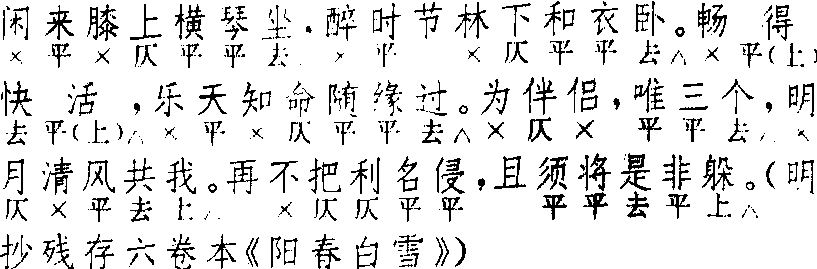 闲来膝上横琴坐,醉时节林下和衣卧。畅 得
× 平 × 仄 平 平 去 × 平 × 仄 平 平 去∧ × 平(上)
快 活 ,乐天知命随缘过。为伴侣,唯三个,明
去 平(上)∧ × 平 × 仄 平 平 去∧ × 仄 × 平 平 去∧ ×
月清风共我。再不把利名侵,且须将是非躲。(明
仄 × 平 去 上∧ × 仄 仄 平 平 平 平 去 平 上∧
抄残存六卷本《阳春白雪》)